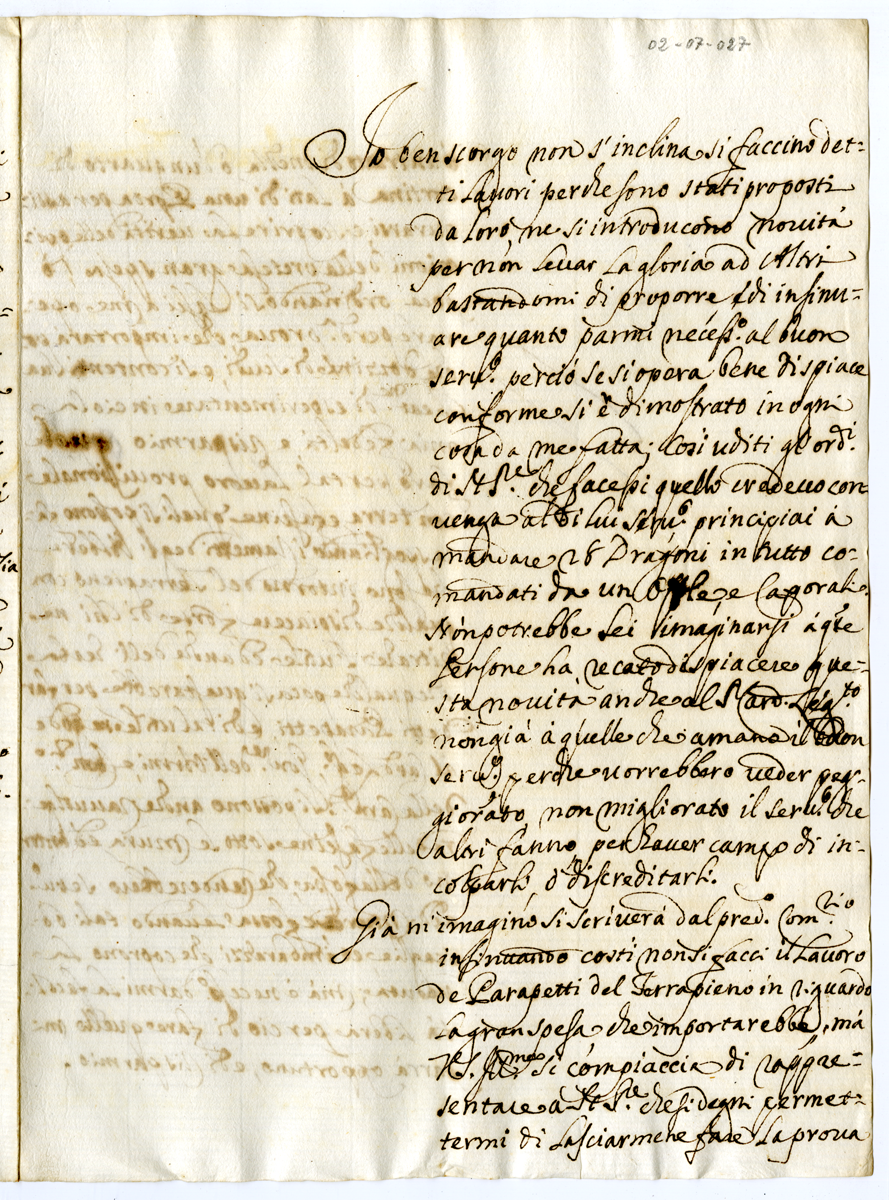 02-07-027
Io ben scorgo non s'inclina si faccino det-
ti lauori perche sono stati proposti
da loro, ne si introducono nouità
per non leuar la gloria ad Altri
bastandomi di proporre e di insinu-
are quanto parmi necess.o al buon
seru.o perciò se si opera bene dispiace
conforme si è dimostrato in ogni
cosa da me fatta; così uditi gl'ord.i
di N S.re che facessi quello credeuo con
uenga al di lui seru.o principiai à
mandare 28 Dragoni in tutto co-
mandati da un Off.le, e Caporali.
Non potrebbe lei imaginarsi à q.te
Persone ha recato dispiacere que-
sta nouità anche al S.r Card. Leg.to
non già à quelle che amano il buon
seru.o perche uorrebbero ueder peg-
giorato, non migliorato il seru.o che
altri fanno per hauer campo di in-
colparli, ò discreditarli.
Già mi imagino si scriuerà dal pred.o Com.rio
insinuando costì non si facci il Lauoro
de Parapetti del Terrapieno in riguardo
la gran spesa che importarebbe, mà
V.S. Ill.ma si compiaccia di rappre-
sentare à N S.re che si degni permet-
termi di lasciarmene fare la proua